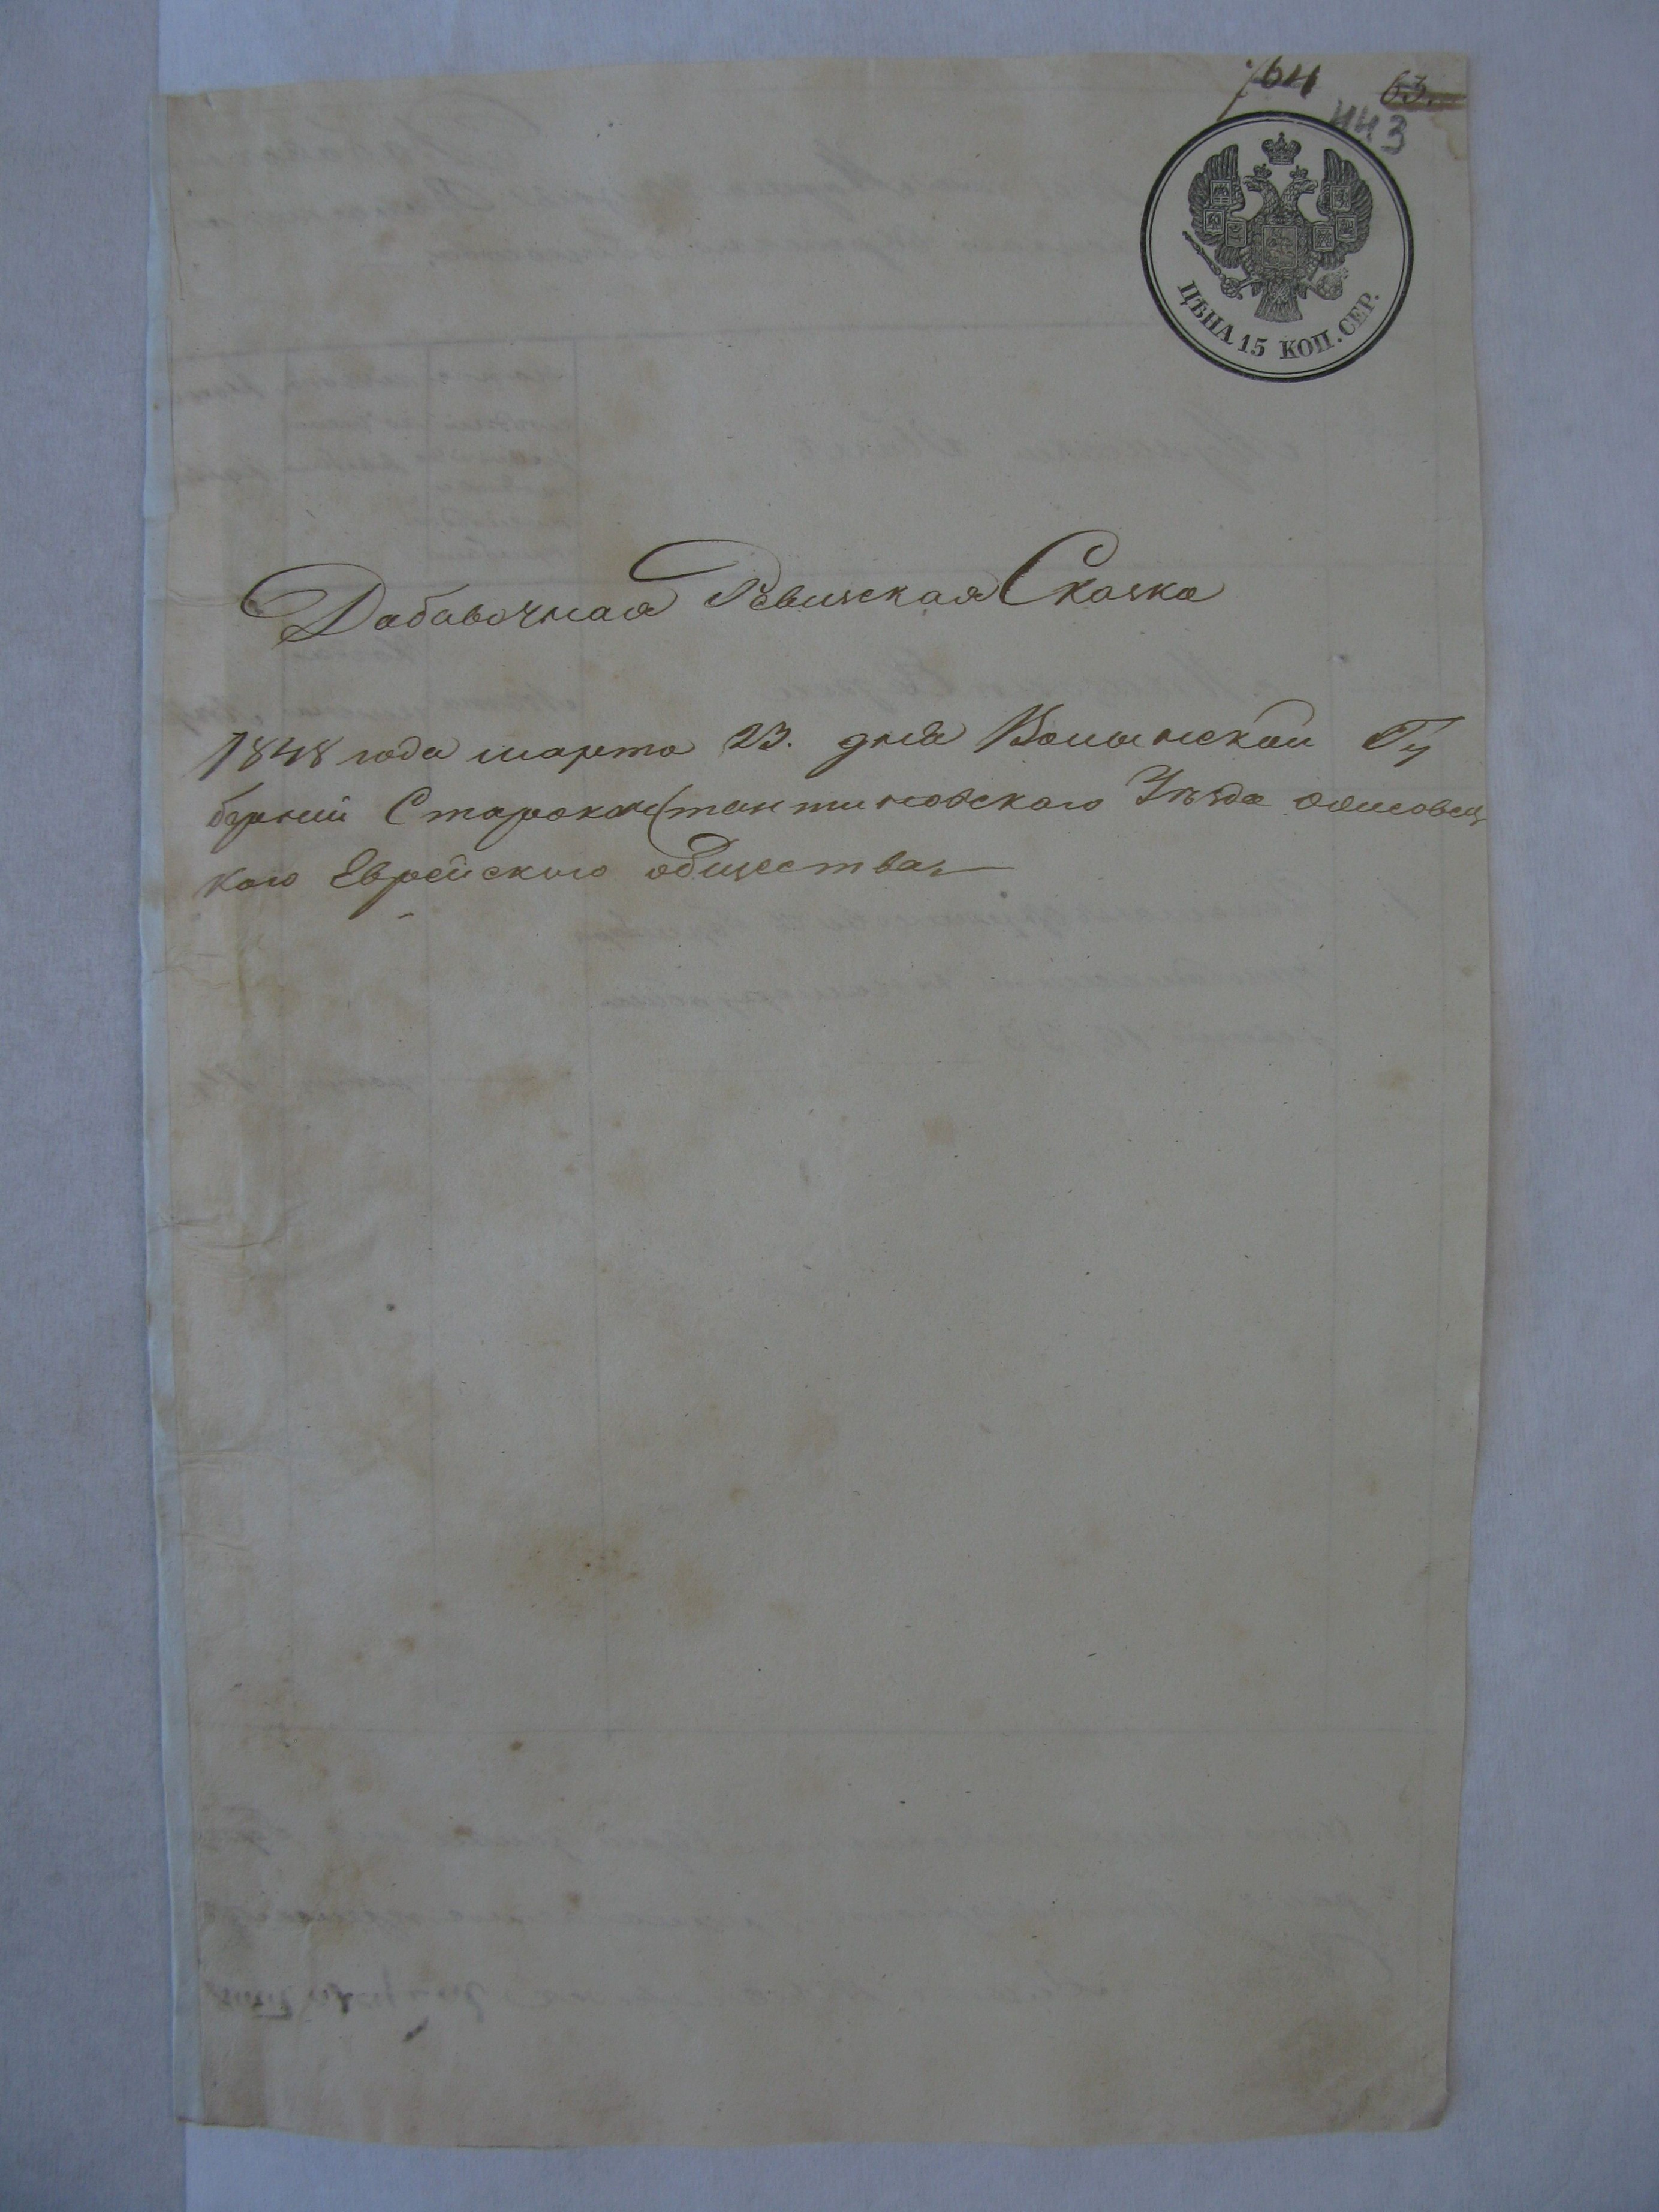 764 63.
443
ЦѢНА 15 КОП. СЕР.
Дабавочная Ревизская Сказка
1848 года марта 23. дня Волынской Гу
берніи Староконстантиновского Уѣзда
кого Еврейского общества